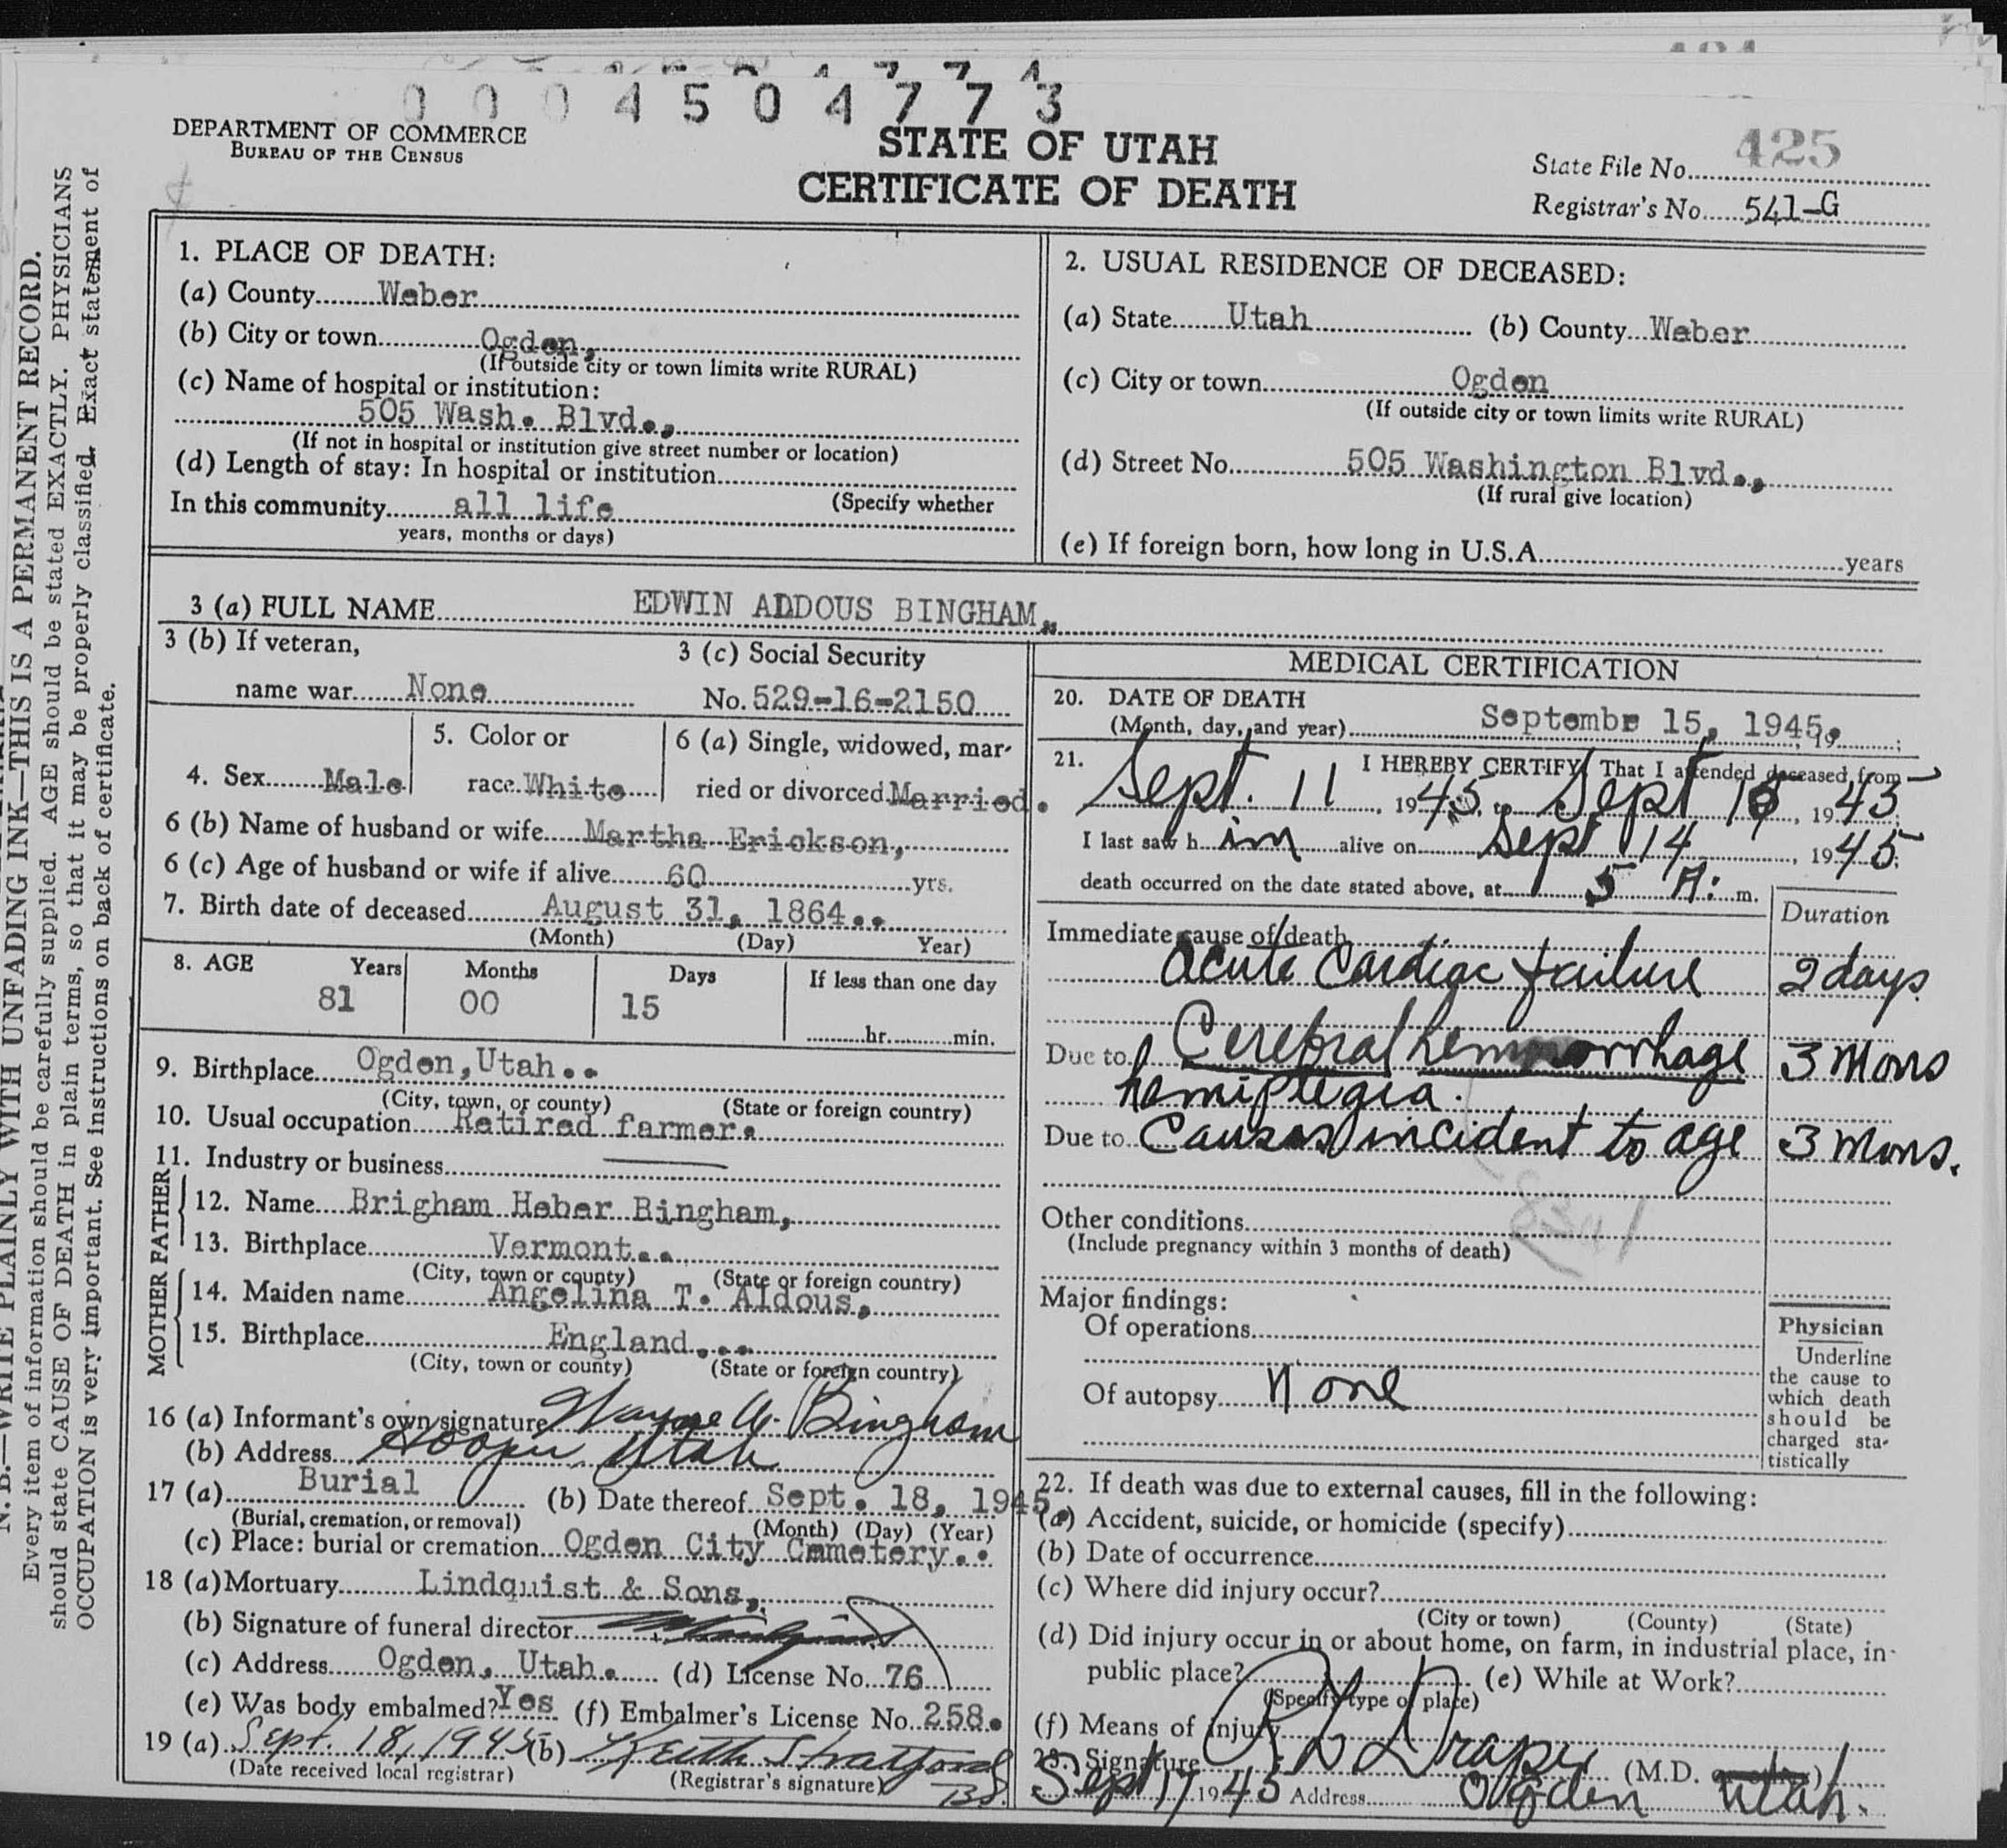 0004504773
DEPARTMENT OF COMMERCE
BUREAU OF THE CENSUS
STATE OF UTAH
CERTIFICATE OF DEATH
State File No. 425
Registrar's No. 541-G
N. B.—WRITE PLAINLY WITH UNFADING INK—THIS IS A PERMANENT RECORD.
Every item of information should be carefully supplied. AGE should be stated EXACTLY. PHYSICIANS
should state CAUSE OF DEATH in plain terms, so that it may be properly classified. Exact statement of
OCCUPATION is very important. See instructions on back of certificate.
1. PLACE OF DEATH:
(a) County Weber
(b) City or town Ogden,
(If outside city or town limits write RURAL)
(c) Name of hospital or institution:
505 Wash. Blvd.,
(If not in hospital or institution give street number or location)
(d) Length of stay: In hospital or institution
In this community all life (Specify whether
years, months or days)
2. USUAL RESIDENCE OF DECEASED:
(a) State Utah (b) County Weber
(c) City or town Ogden
(If outside city or town limits write RURAL)
(d) Street No. 505 Washington Blvd.,
(If rural give location)
(e) If foreign born, how long in U.S.A. years
3 (a) FULL NAME EDWIN ADDOUS BINGHAM,
3 (b) If veteran,
name war None
3 (c) Social Security
No. 529-16-2150
4. Sex Male
5. Color or
race White
6 (a) Single, widowed, mar-
ried or divorced Married.
6 (b) Name of husband or wife Martha Erickson,
6 (c) Age of husband or wife if alive 60 yrs.
7. Birth date of deceased August 31, 1864..
(Month) (Day) Year)
8. AGE Years Months Days If less than one day
81 00 15
hr. min.
9. Birthplace Ogden,Utah..
(City, town, or county) (State or foreign country)
10. Usual occupation Retired farmer.
11. Industry or business
FATHER
12. Name Brigham Heber Bingham,
13. Birthplace Vermont..
(City, town or county) (State or foreign country)
MOTHER
14. Maiden name Angelina T. Aldous,
15. Birthplace England...
(City, town or county) (State or foreign country)
16 (a) Informant's own signature Wayne A. Bingham
(b) Address Hooper Utah
17 (a) Burial (b) Date thereof Sept. 18, 1945
(Burial, cremation, or removal) (Month) (Day) (Year)
(c) Place: burial or cremation Ogden City Cemetery..
18 (a) Mortuary Lindquist & Sons,
(b) Signature of funeral director
(c) Address Ogden, Utah. (d) License No. 76
(e) Was body embalmed? Yes (f) Embalmer's License No. 258.
19 (a) Sept. 18, 1945 (b) Keith Stratford
(Date received local registrar) (Registrar's signature)
MEDICAL CERTIFICATION
20. DATE OF DEATH
(Month, day, and year) Septembr 15, 1945. 19 ;
21. I HEREBY CERTIFY, That I attended deceased from
Sept. 11, 1945, to Sept 15, 1945;
I last saw h im alive on Sept 14, 1945;
death occurred on the date stated above, at 5 A: m.
Duration
Immediate cause of death
Acute Cardiac failure 2 days
Due to Cerebral hemmorrhage 3 Mons
hemiplegia.
Due to Causes incident to age 3 Mons.
Other conditions
(Include pregnancy within 3 months of death)
Major findings:
Of operations
Of autopsy None
Physician
Underline
the cause to
which death
should be
charged sta-
tistically
22. If death was due to external causes, fill in the following:
(a) Accident, suicide, or homicide (specify)
(b) Date of occurrence
(c) Where did injury occur?
(City or town) (County) (State)
(d) Did injury occur in or about home, on farm, in industrial place, in
public place? (e) While at Work?
(Specify type of place)
(f) Means of injury
23. Signature R L Draper (M.D.
Sept 17 1945 Address Ogden Utah.